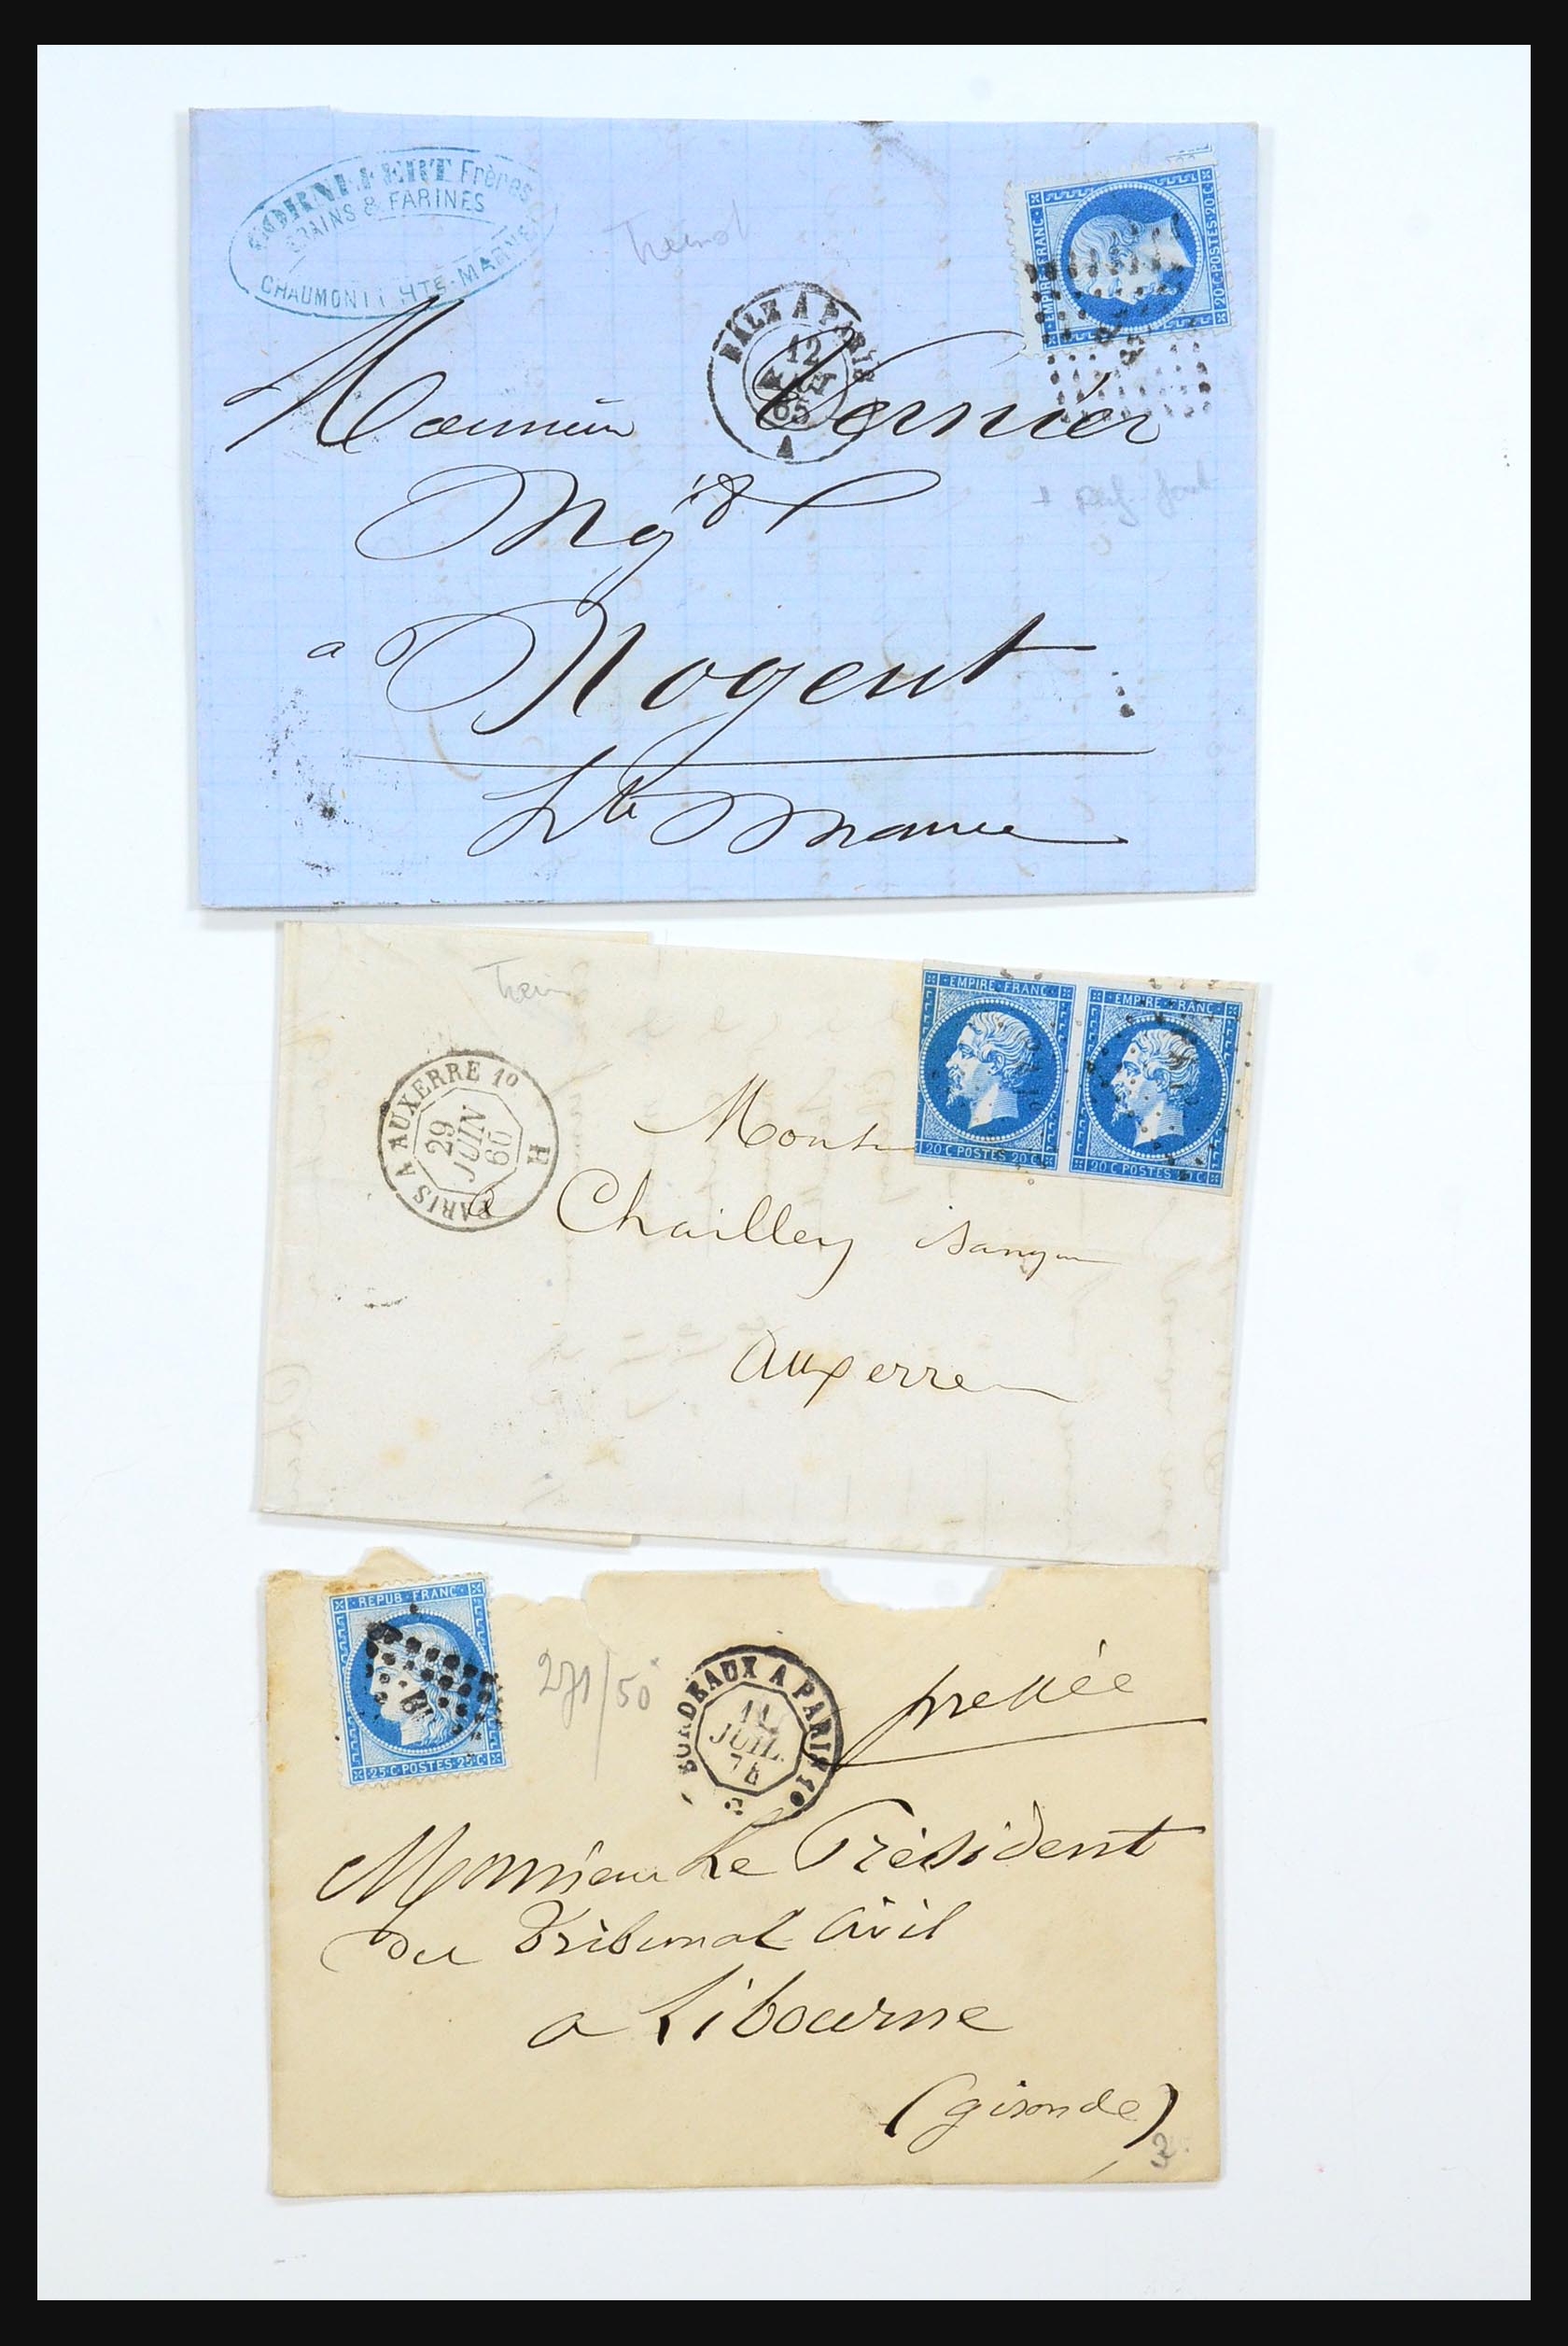 Frères
GRAINS & FARINES
CHAUMONT HTE-MARNE
EMPIRE FRANC
20 C POSTES 20 C
BALE A PARIS
12
AOUT
65
A
Monsieur Vernier
Mgd
a Nogent
Hte Marne
EMPIRE FRANC
20 C POSTES 20 C
EMPIRE FRANC
20 C POSTES 20 C
PARIS A AUXERRE 1º
29
JUIN
60
H
Monsr
Chailley
Auxerre
REPUB FRANC
25 C POSTES 25 C
271/50
BORDEAUX A PARIS 1º
11
JUIL.
2
pressée
Monsieur Le Président
du Tribunal Civil
a Libourne
(gironde)